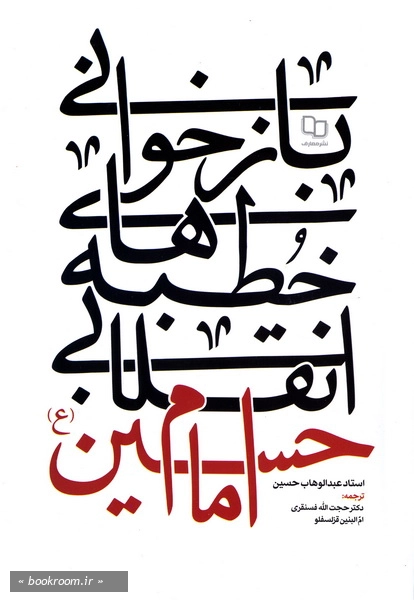 بازخوانی
نشر معارف
خطبه‌های
انقلابی
امام حسین (ع)
استاد عبدالوهاب حسین
ترجمه:
دکتر حجت الله فسنقری
امّ البنین قزلسفلو
« bookroom.ir »